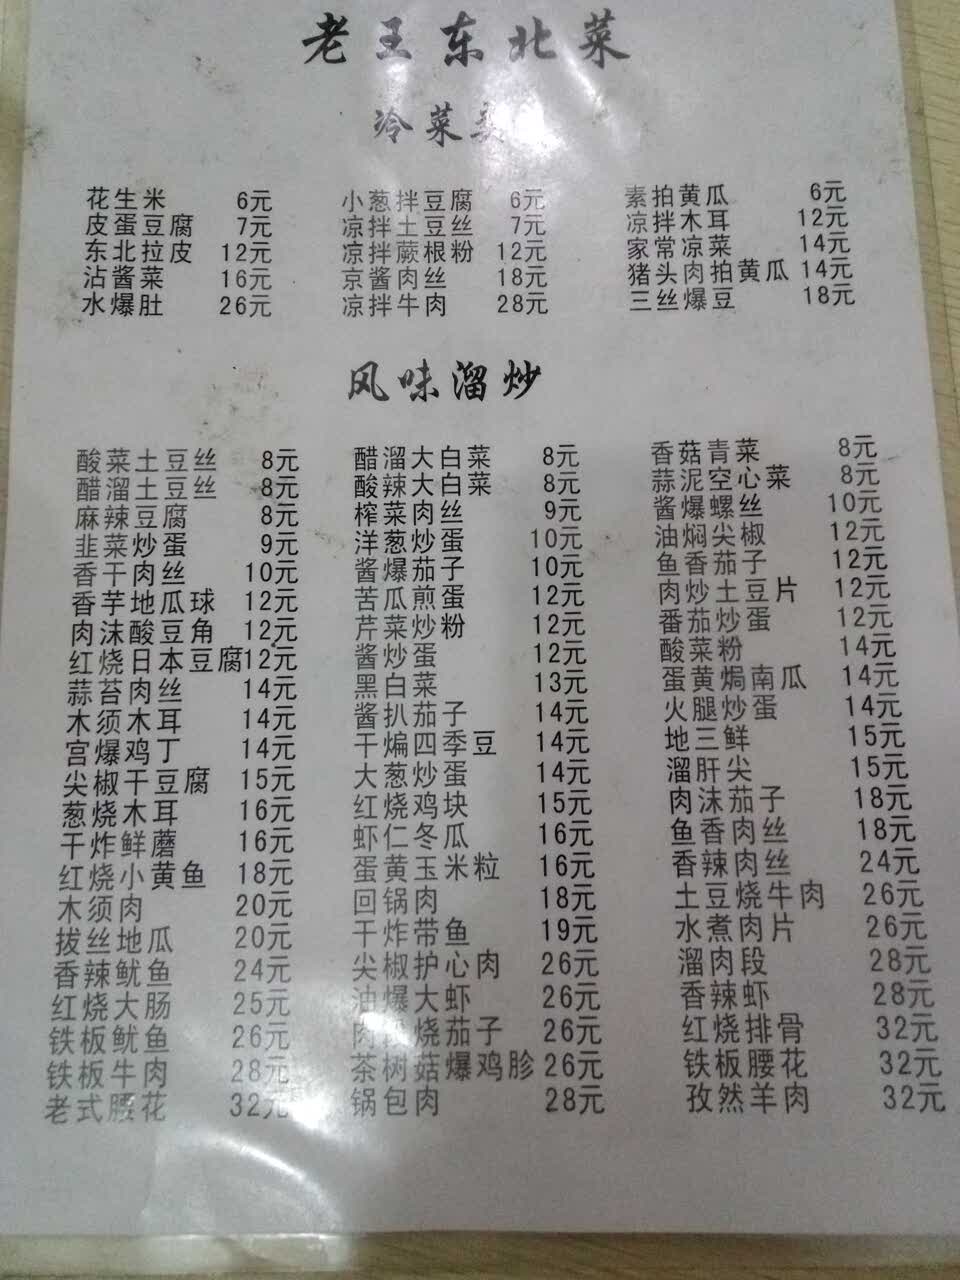 老王东北菜
冷菜类
花生米 6元 小葱拌豆腐 6元 素拍黄瓜 6元
皮蛋豆腐 7元 凉拌土豆丝 7元 凉拌木耳 12元
东北拉皮 12元 凉拌蕨根粉 12元 家常凉菜 14元
沾酱菜 16元 京酱肉丝 18元 猪头肉拍黄瓜 14元
水爆肚 26元 凉拌牛肉 28元 三丝爆豆 18元
风味溜炒
酸菜土豆丝 8元 醋溜大白菜 8元 香菇青菜 8元
醋溜土豆丝 8元 酸辣大白菜 8元 蒜泥空心菜 8元
麻辣豆腐 8元 榨菜肉丝 9元 酱爆螺丝 10元
韭菜炒蛋 9元 洋葱炒蛋 10元 油焖尖椒 12元
香干肉丝 10元 酱爆茄子 10元 鱼香茄子 12元
香芋地瓜球 12元 苦瓜煎蛋 12元 肉炒土豆片 12元
肉沫酸豆角 12元 芹菜炒粉 12元 番茄炒蛋 12元
红烧日本豆腐 12元 酱炒蛋 12元 酸菜粉 14元
蒜苔肉丝 14元 黑白菜 13元 蛋黄焗南瓜 14元
木须木耳 14元 酱扒茄子 14元 火腿炒蛋 14元
宫爆鸡丁 14元 干煸四季豆 14元 地三鲜 15元
尖椒干豆腐 15元 大葱炒蛋 14元 溜肝尖 15元
葱烧木耳 16元 红烧鸡块 15元 肉沫茄子 18元
干炸鲜蘑 16元 虾仁冬瓜 16元 鱼香肉丝 18元
红烧小黄鱼 18元 蛋黄玉米粒 16元 香辣肉丝 24元
木须肉 20元 回锅肉 18元 土豆烧牛肉 26元
拔丝地瓜 20元 干炸带鱼 19元 水煮肉片 26元
香辣鱿鱼 24元 尖椒护心肉 26元 溜肉段 28元
红烧大肠 25元 油爆大虾 26元 香辣虾 28元
铁板鱿鱼 26元 肉段烧茄子 26元 红烧排骨 32元
铁板牛肉 28元 茶树菇爆鸡胗 26元 铁板腰花 32元
老式腰花 32元 锅包肉 28元 孜然羊肉 32元